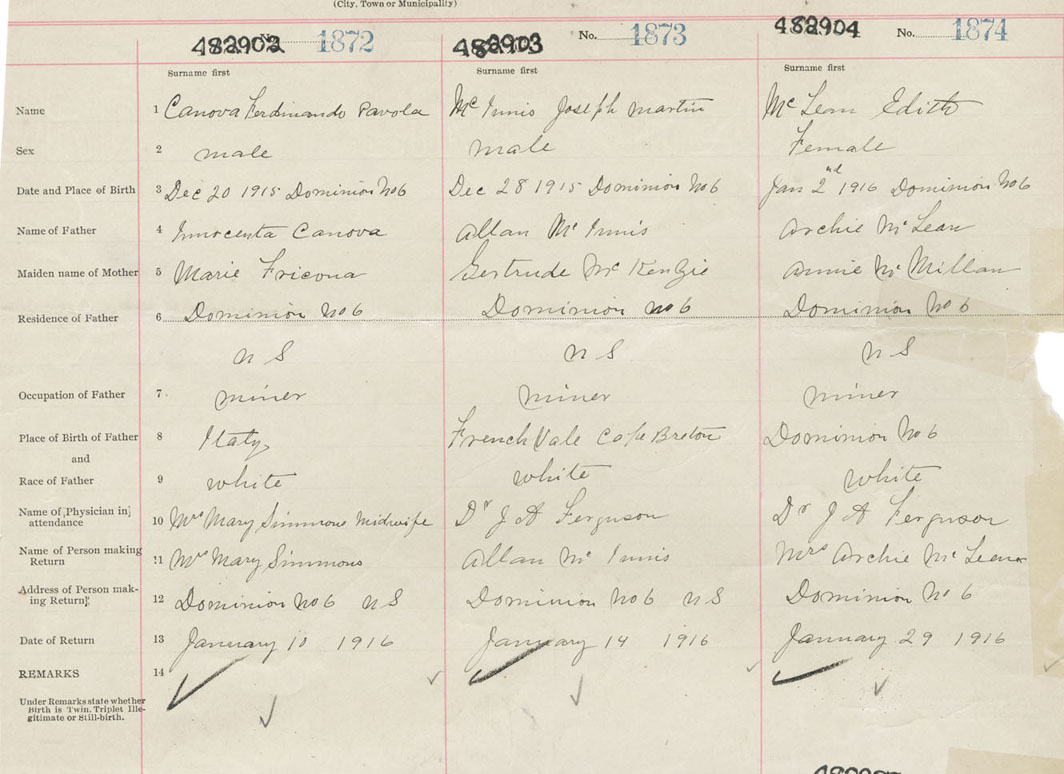 (City, Town or Municipality)
482902 No. 1872 482903 No. 1873 482904 No. 1874
Surname first Surname first Surname first
Name 1 Canova Ferdinando Pavola Mc Innis Joseph Martin Mc Lean Edith
Sex 2 male male Female
Date and Place of Birth 3 Dec 20 1915 Dominion No 6 Dec 28 1915 Dominion No 6 Jan 2nd 1916 Dominion No 6
Name of Father 4 Innocenta Canova Allan Mc Innis Archie Mc Lean
Maiden name of Mother 5 Marie Fricona Gertrude Mc Kenzie Annie Mc Millan
Residence of Father 6 Dominion No 6 Dominion No 6 Dominion No 6
N S N S N S
Occupation of Father 7 miner miner miner
Place of Birth of Father 8 Italy French Vale Cape Breton Dominion No 6
and
Race of Father 9 white white white
Name of Physician in attendance 10 Mrs Mary Simmons Midwife Dr J A Ferguson Dr J A Ferguson
Name of Person making Return 11 Mrs Mary Simmons Allan Mc Innis Mrs Archie Mc Lean
Address of Person making Return 12 Dominion No 6 N S Dominion No 6 N S Dominion No 6
Date of Return 13 January 10 1916 January 14 1916 January 29 1916
REMARKS 14
Under Remarks state whether
Birth is Twin, Triplet Ille-
gitimate or Still-birth.